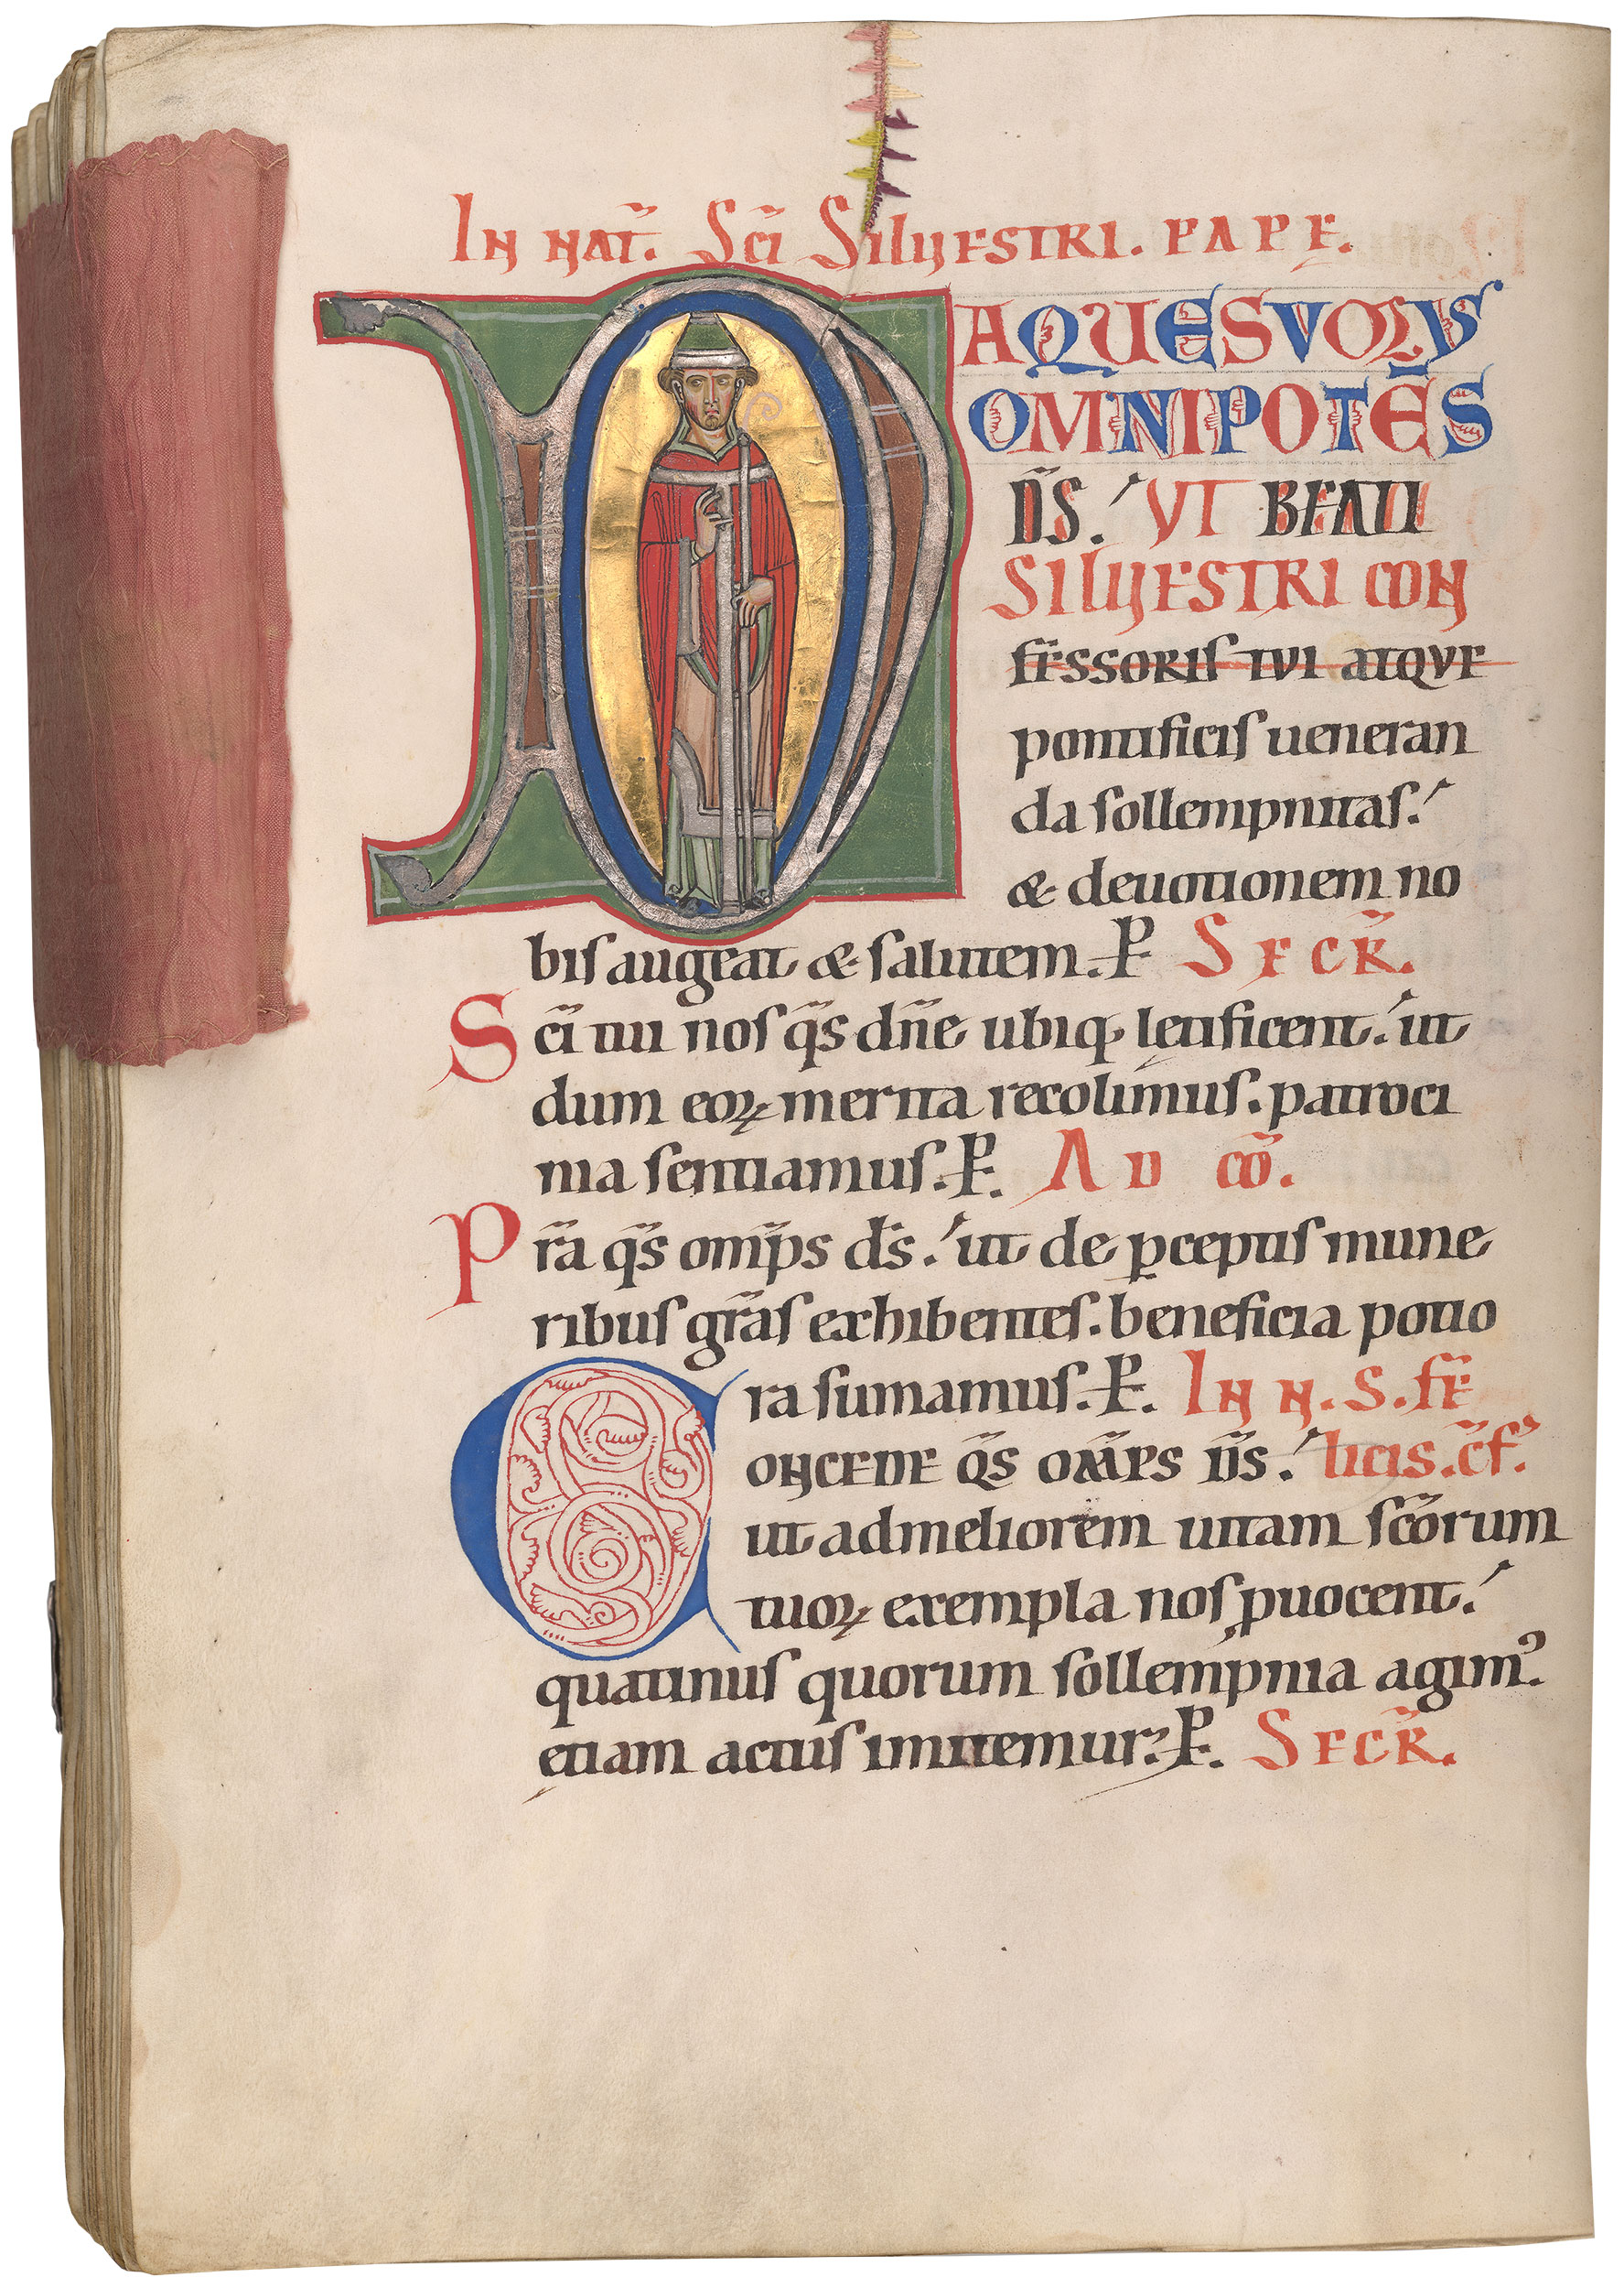 IN NAT̄. SC̄I SILVESTRI. PAPE.
DA QUESUM̄S
OMNIPOTĒS
D̄S. UT BEATI
SILVESTRI CON
FESSORIS TVI ATQVE
pontificis ueneran
da sollempnitas.
& deuotionem no
bis augeat & salutem. P̄ SECR̄.
Sc̄i tui nos q̄s dn̄e ubiq. lętificent. ut
dum eoꝝ merita recolimus. patroci
nia sentiamus. P̄. AD CŌ.
Pr̄a q̄s omp̄s ds̄. ut de ꝑceptis mune
ribus gr̄as exhibentes. beneficia potio
ra sumamus. P̄. IN N. S. FE
CONCEDE Q̄S OMP̄S D̄S. LICIS. C̄F.
ut ad meliorem uitam scōrum
tuoꝝ exempla nos ꝓuocent.
quatinus quorum sollempnia agimꝰ.
etiam actus imitemur. P̄. SECR̄.